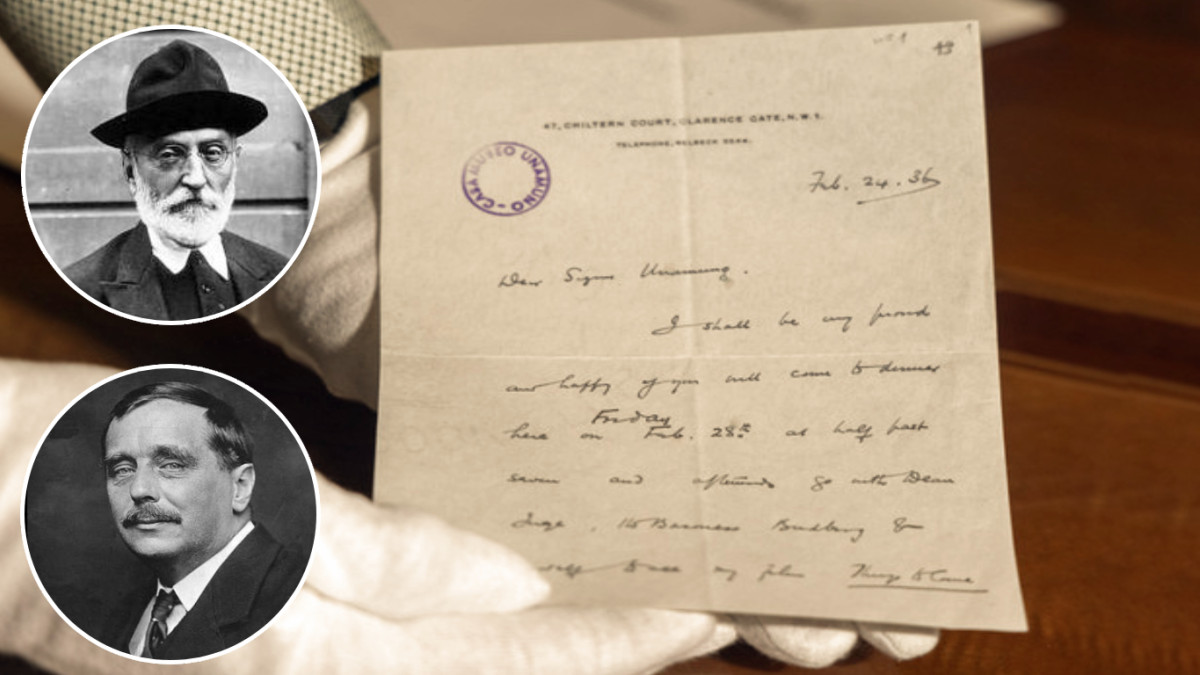 43
47, CHILTERN COURT, CLARENCE GATE, N.W.1.
TELEPHONE, WELBECK
CASA MUSEO UNAMUNO
Feb. 24. 36
Dear Signor Unamuno.
I shall be very proud
and happy if you will come to dinner
Friday
here on Feb. 28th at half past
seven and afterwards go with Dean
Inge, the Baroness Budberg &
myself to see my film Things to Come